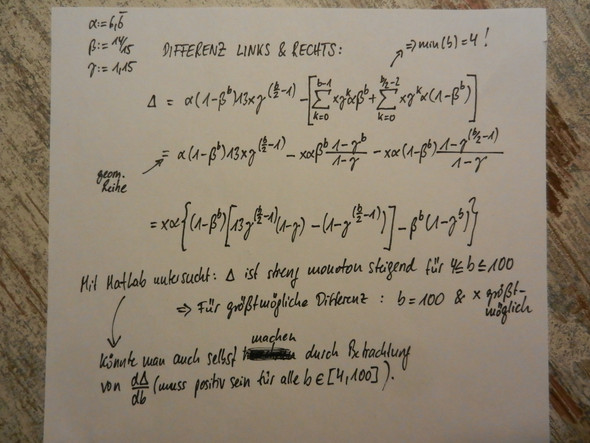 α := 6,6̅
β := 14/15
γ := 1,15
DIFFERENZ LINKS & RECHTS:
⇒ min(b) = 4 !
Δ = α(1-β^b)13xγ^(b/2-1) - [∑_{k=0}^{b-1} xγ^k αβ^b + ∑_{k=0}^{b/2-2} xγ^k α(1-β^b)]
geom. Reihe
= α(1-β^b)13xγ^(b/2-1) - xαβ^b (1-γ^b)/(1-γ) - xα(1-β^b) (1-γ^(b/2-1))/(1-γ)
= xα{(1-β^b)[13γ^(b/2-1)(1-γ) - (1-γ^(b/2-1))] - β^b(1-γ^b)}
Mit Matlab untersucht: Δ ist streng monoton steigend für 4≤b≤100
⇒ Für größtmögliche Differenz: b=100 & x größt-
möglich
Könnte man auch selbst machen durch Betrachtung
von dΔ/db (muss positiv sein für alle b∈[4,100]).